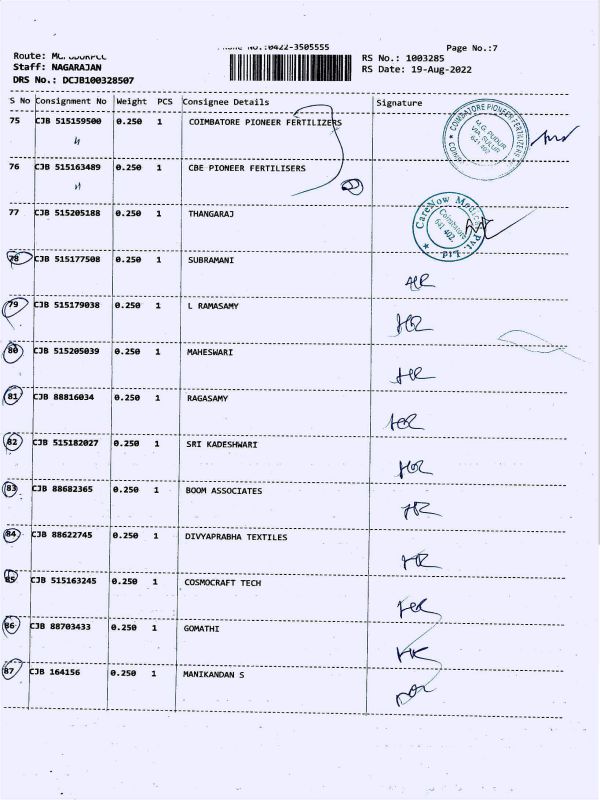 0422-3505555
Page No.:7
Route:
Staff: NAGARAJAN
DRS No.: DCJB100328507
RS No.: 1003285
RS Date: 19-Aug-2022
S No Consignment No Weight PCS Consignee Details Signature
75 CJB 515159500 0.250 1 COIMBATORE PIONEER FERTILIZERS
COIMBATORE PIONEER FERTILIZERS
M.G. PUDUR
VIA. SULUR
641 402
76 CJB 515163489 0.250 1 CBE PIONEER FERTILISERS
77 CJB 515205188 0.250 1 THANGARAJ
CareNow Medical Pvt. Ltd
Coimbatore
641 402.
78 CJB 515177508 0.250 1 SUBRAMANI
79 CJB 515179038 0.250 1 L RAMASAMY
80 CJB 515205039 0.250 1 MAHESWARI
81 CJB 88816034 0.250 1 RAGASAMY
82 CJB 515182027 0.250 1 SRI KADESHWARI
83 CJB 88682365 0.250 1 BOOM ASSOCIATES
84 CJB 88622745 0.250 1 DIVYAPRABHA TEXTILES
85 CJB 515163245 0.250 1 COSMOCRAFT TECH
86 CJB 88703433 0.250 1 GOMATHI
87 CJB 164156 0.250 1 MANIKANDAN S